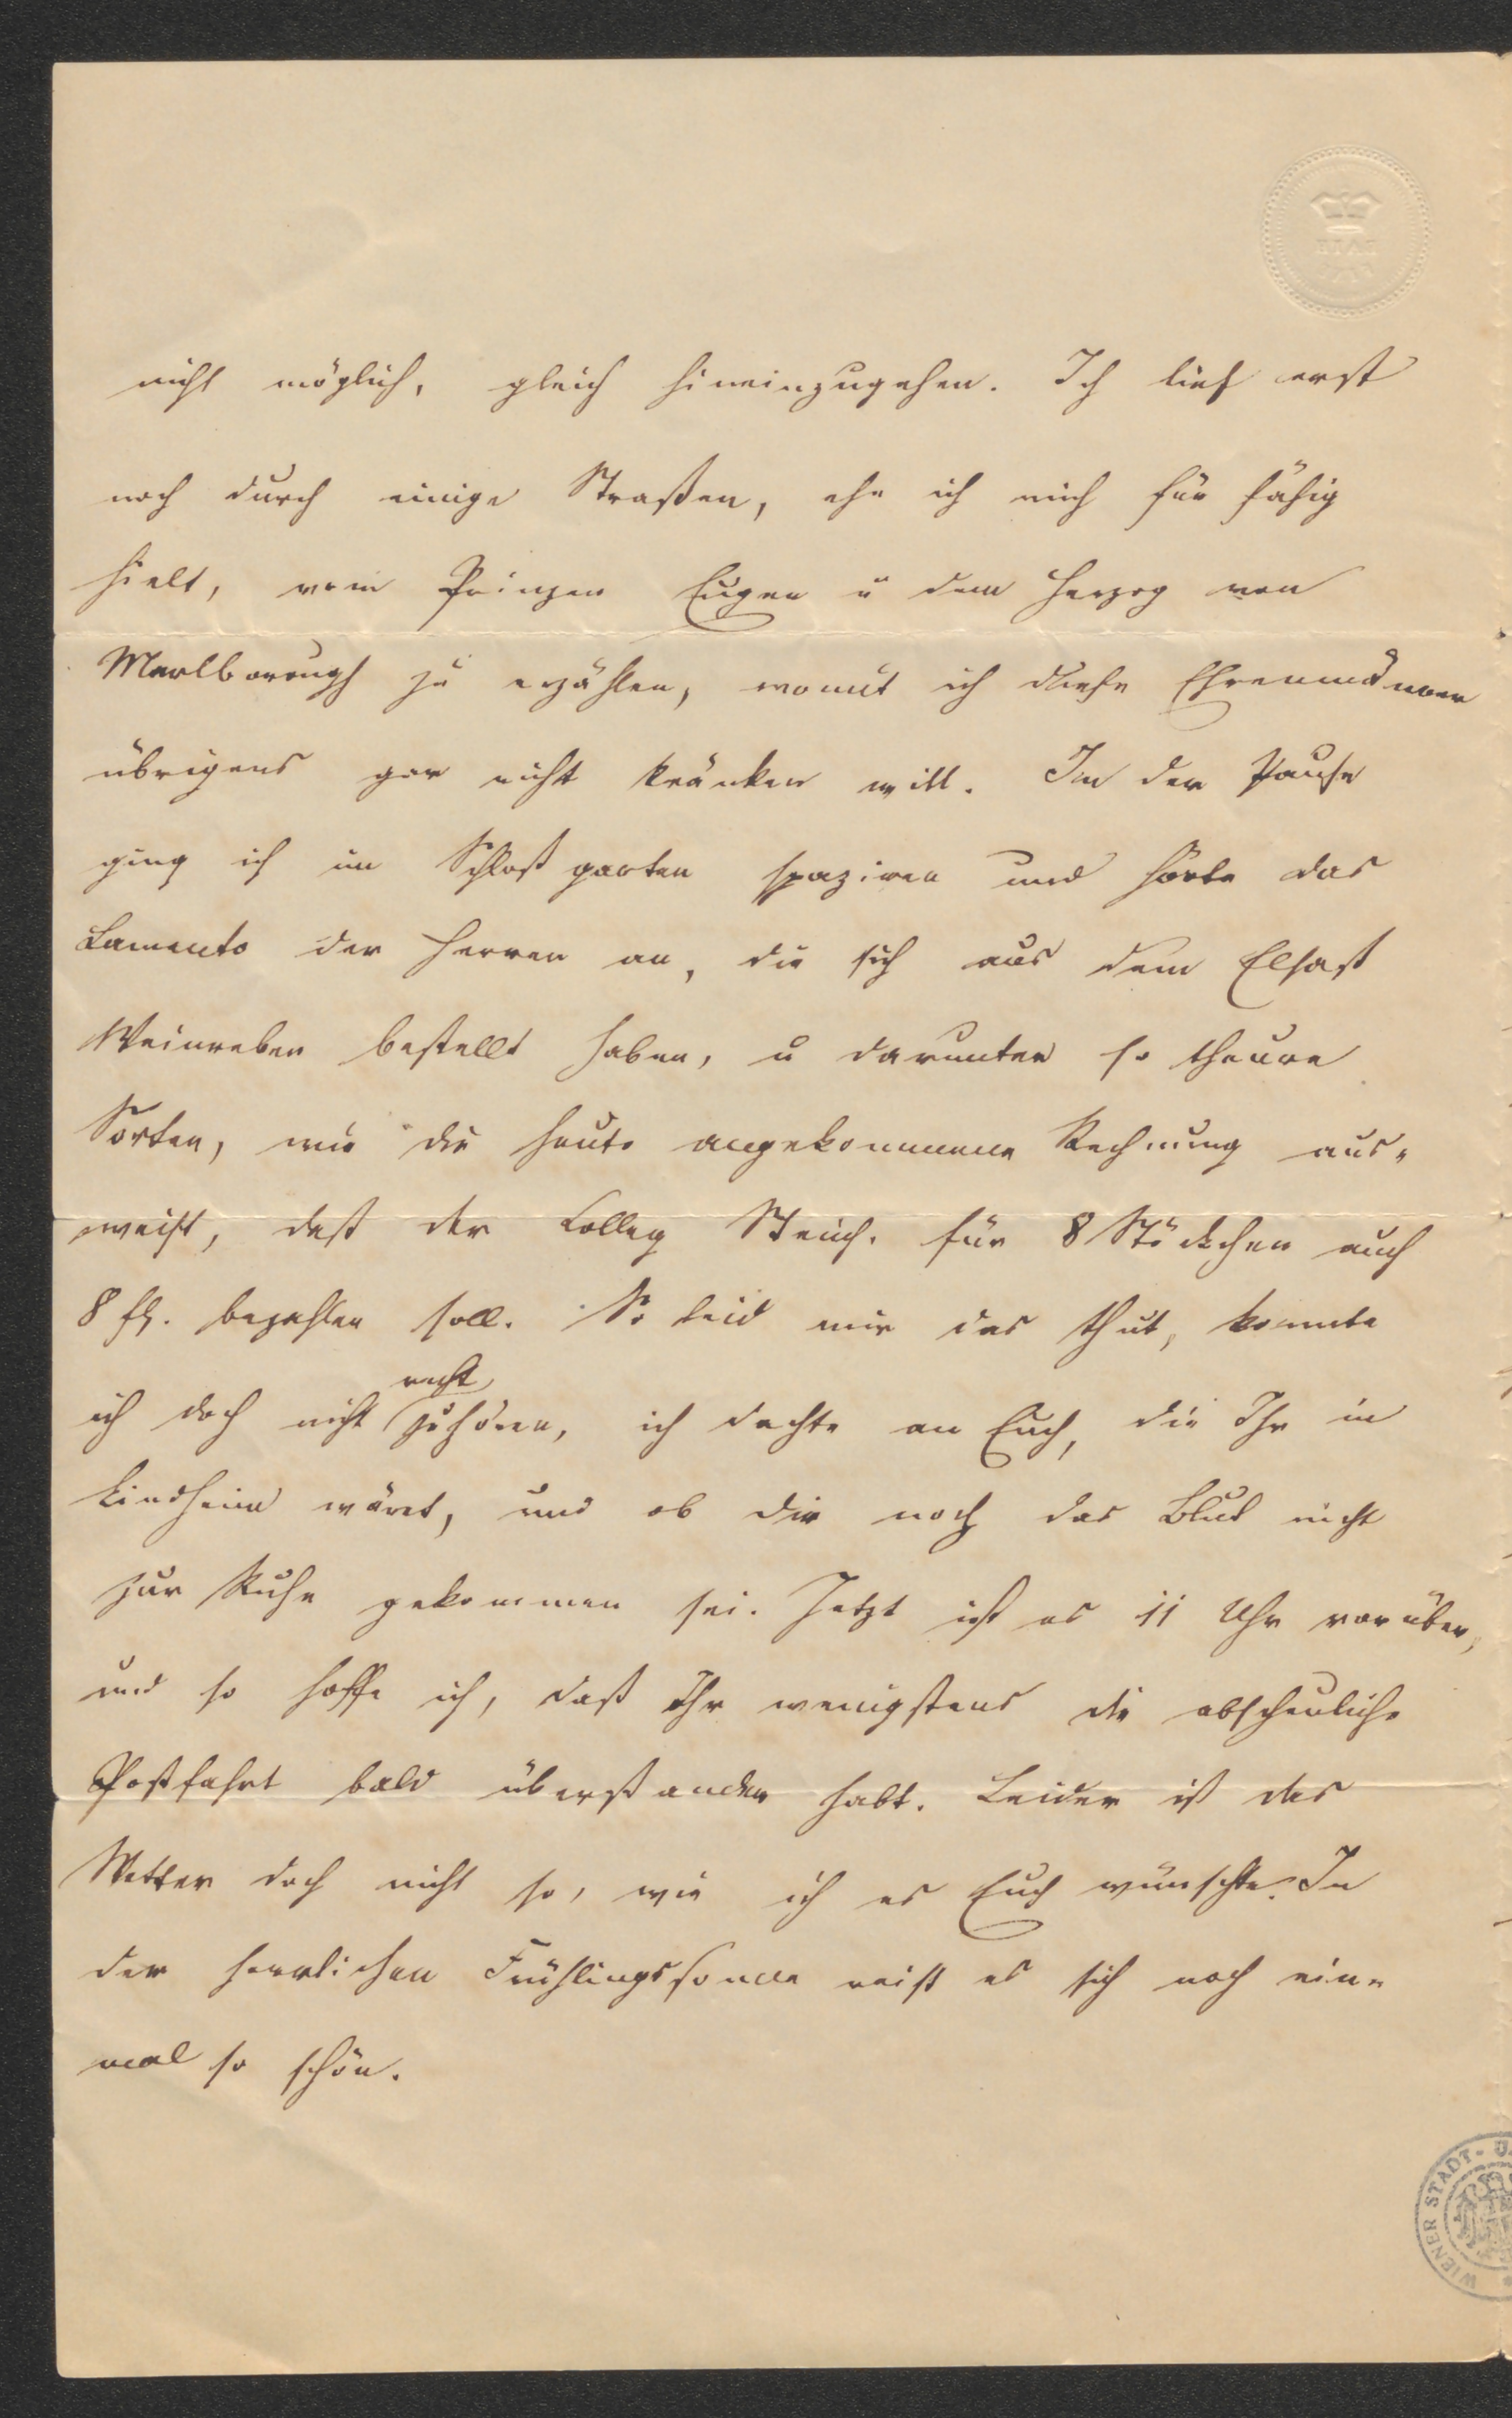 nicht möglich, gleich hineinzugehen. Ich lief erst
noch durch einige Straßen, ehe ich mich für fähig
hielt, vom Prinzen Eugen u dem Herzog von
Marlborough zu erzählen, womit ich diese Ehrenmänner
übrigens gar nicht kränken will. In der Pause
ging ich im Schloßgarten spaziren und hörte das
Lamento der Herren an, die sich aus dem Elsaß
Weinreben bestellt haben, u darunter so theure
Sorten, wie die heute angekommene Rechnung aus-
weist, daß der Colleg für 8 Stöckchen auch
8 fl. bezahlen soll. So leid mir das thut, konnte
recht
ich doch nicht zuhören, ich dachte an Euch, die Ihr in
wäret, und ob dir noch das Blut nicht
zur Ruhe gekommen sei. Jetzt ist es 11 Uhr vorüber,
und so hoffe ich, daß Ihr wenigstens die abscheuliche
Postfahrt bald überstanden habt. Leider ist das
Wetter doch nicht so, wie ich es Euch wünschte. In
der herrlichen Frühlingssonne reist es sich noch ein-
mal so schön.
BATH
WIENER STADT- U